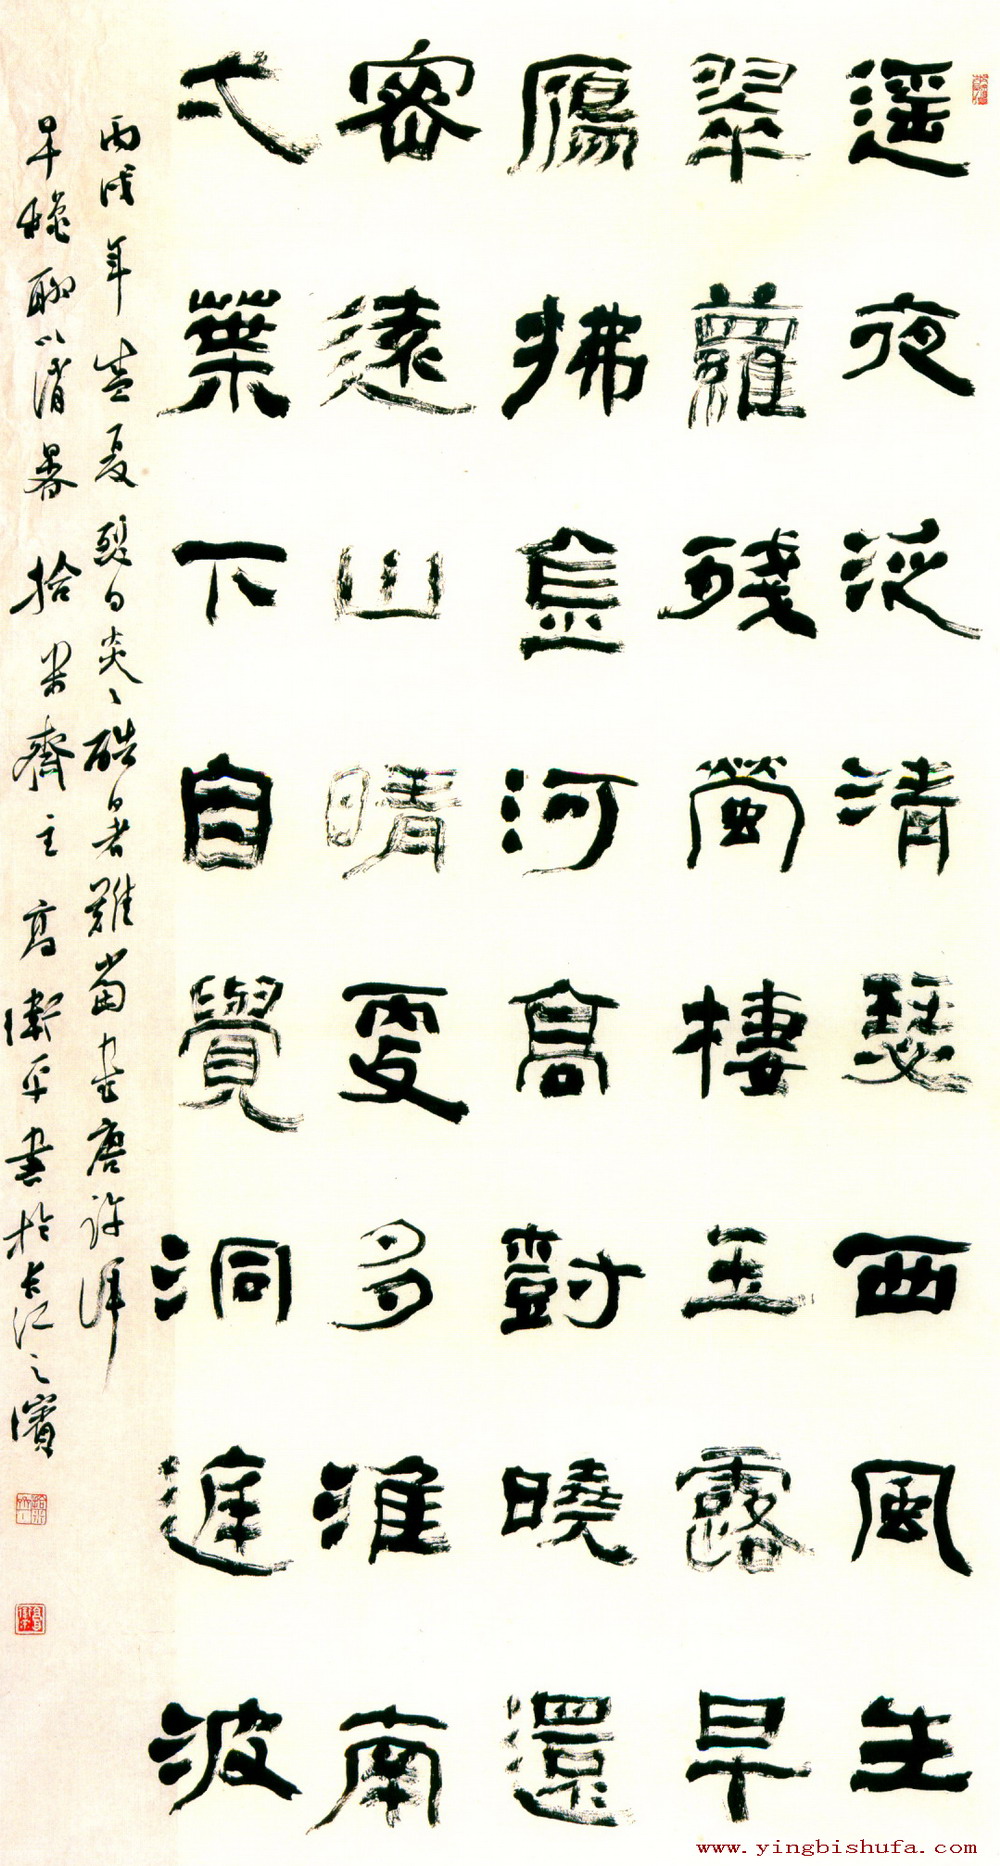 遥夜泛清瑟西風生
翠蘿殘螢棲玉露早
鴈拂金河高對曉還
密遠山晴更多淮南
弌葉下自覺洞庭波
丙戌年盛夏烈日炎炎酷暑難當書唐許渾
早穐聊以消暑 拾米齋主高衛平書於長江之濱
www.yingbishufa.com